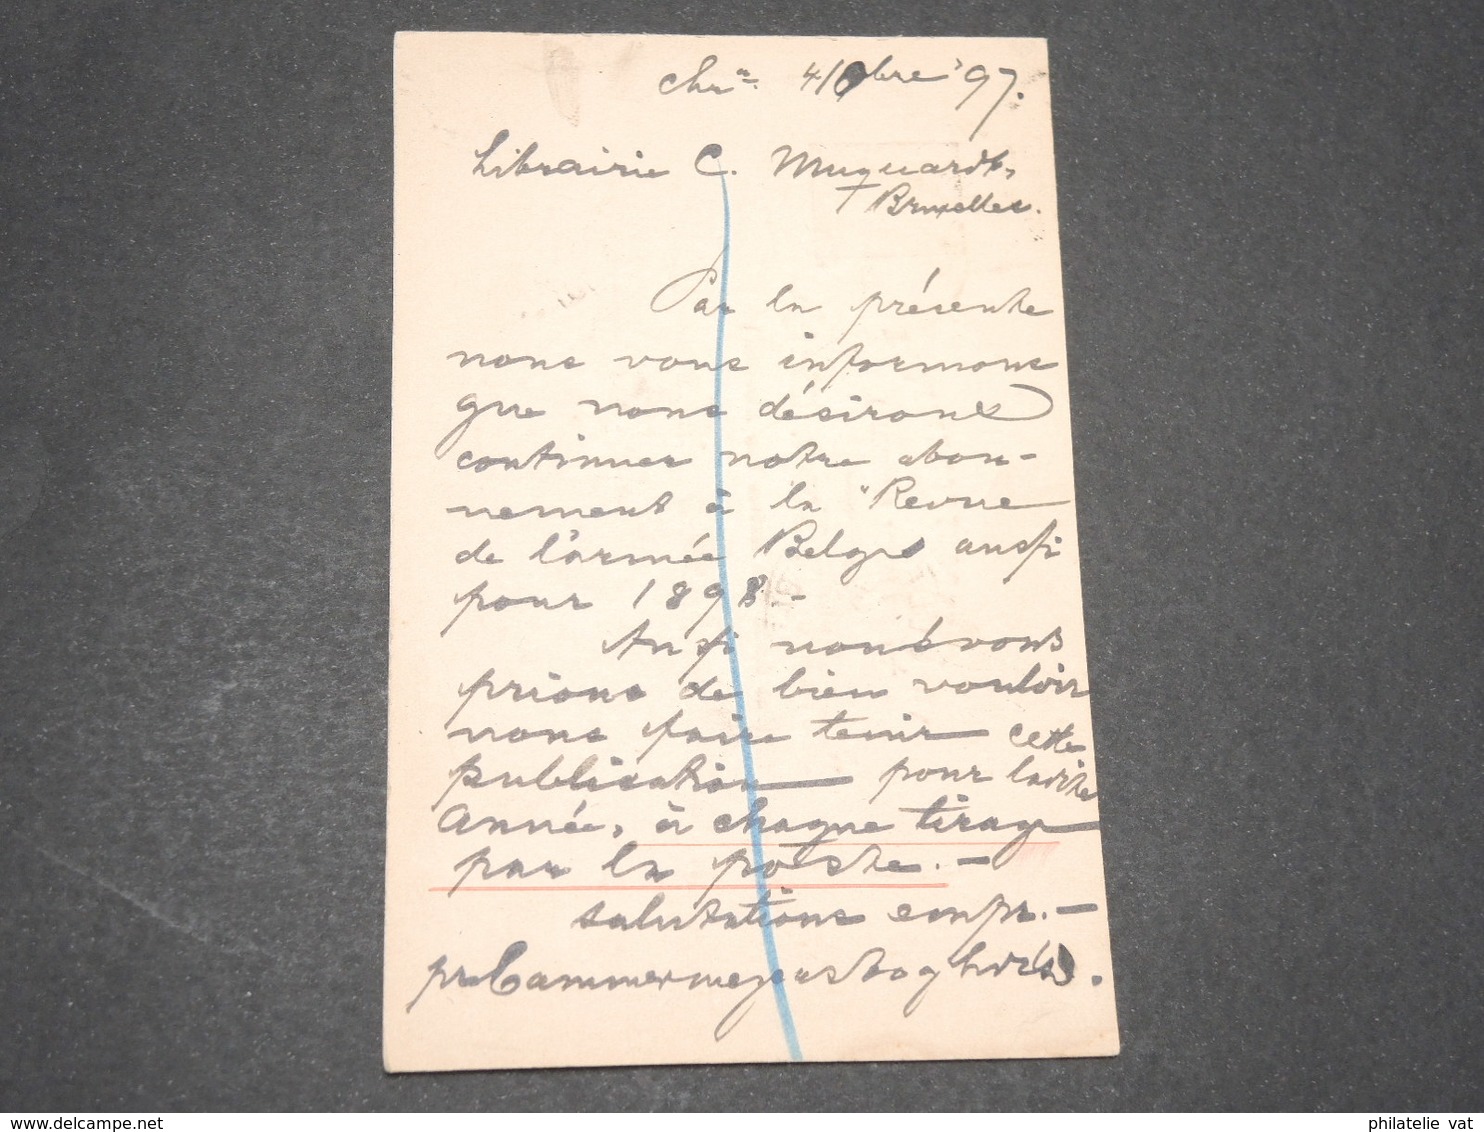 Chr<sup>a</sup>. 4/ bre '97.
Librairie C. Muquardt,
Bruxelles.
Par la présente
nous vous informons
que nous désirons
continuer notre abon-
nement à la "Revue
de l'armée Belge aussi
pour 1898.-
Aussi nous vous
prions de bien vouloir
nous faire tenir cette
publication pour ladite
Année, à chaque tirage
par la poste.-
salutations empr.-
pr Cammermeyers boghdl.
delcampe.net
philatelie_vat